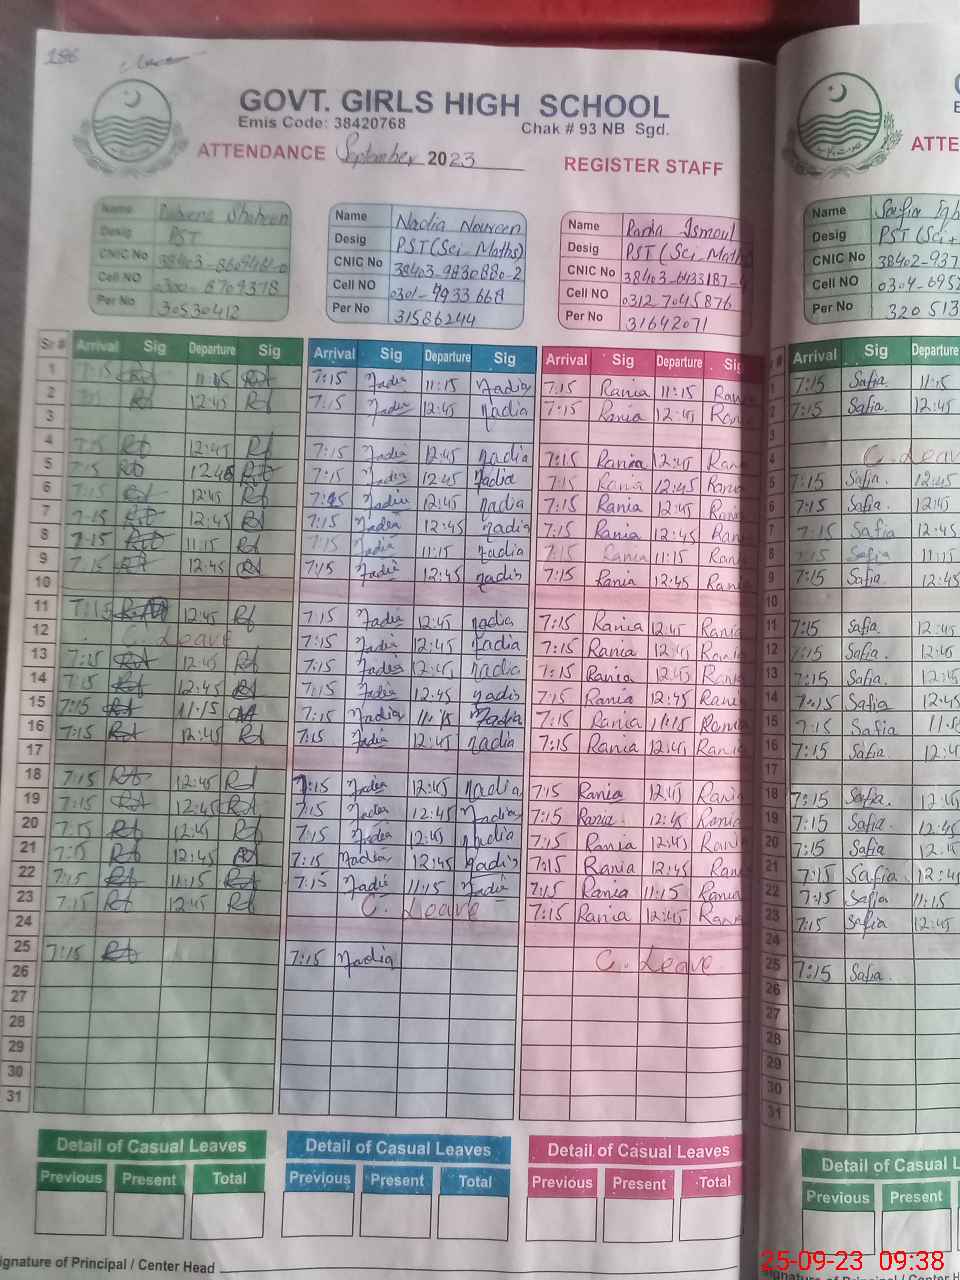 186
GOVT. GIRLS HIGH SCHOOL
Emis Code: 38420768 Chak # 93 NB Sgd.
ATTENDANCE September 2023 REGISTER STAFF
ATTE
Name Shaheen
Desig PST
CNIC No
Cell NO 0300-8709378
Per No 30530412
Name Nadia Noureen
Desig PST (Sci_Maths)
CNIC No 38403-9830880-2
Cell NO
Per No 31586244
Name Rania Ismail
Desig PST (Sci_Maths
CNIC No 38403-6433187-
Cell NO 0312 7045876
Per No 31642071
Name Safia Iqb
Desig PST (Sci+
CNIC No 38402-937
Cell NO 0304-695
Per No 320 513
Sr # Arrival Sig Departure Sig Arrival Sig Departure Sig Arrival Sig Departure Sig # Arrival Sig Departure
1 7:15 11:15 7:15 Nadia 11:15 Nadia 7:15 Rania 11:15 Ran 1 7:15 Safia 11:15
2 12:45 7:15 Nadia 12:45 Nadia 7:15 Rania 12:45 Ran 2 7:15 Safia. 12:45
3 3
4 7:15 12:45 7:15 Nadia 12:45 Nadia 7:15 Rania 12:45 Rani 4 C. Leav
5 7:15 12:45 7:15 Nadia 12:45 Nadia 7:15 Rania 12:45 Rania 5 7:15 Safia. 12:45
6 7:15 12:45 7:15 Nadia 12:45 Nadia 7:15 Rania 12:45 Rani 6 7:15 Safia. 12:45
7 7:15 12:45 7:15 Nadia 12:45 Nadia 7:15 Rania 12:45 Ran 7 7:15 Safia 12:45
8 7:15 11:15 7:15 Nadia 11:15 Nadia 7:15 Rania 11:15 Ran 8 7:15 Safia 11:15
9 7:15 12:45 7:15 Nadia 12:45 Nadia 7:15 Rania 12:45 Rani 9 7:15 Safia 12:45
10 10
11 7:15 12:45 7:15 Nadia 12:45 Nadia 7:15 Rania 12:45 Rania 11 7:15 Safia. 12:45
12 C. Leave 7:15 Nadia 12:45 Nadia 7:15 Rania 12:45 Rania 12 7:15 Safia. 12:45
13 7:15 12:45 7:15 Nadia 12:45 Nadia 7:15 Rania 12:45 Rania 13 7:15 Safia. 12:45
14 7:15 12:45 7:15 Nadia 12:45 Nadia 7:15 Rania 12:45 Rania 14 7:15 Safia 12:45
15 7:15 11:15 7:15 Nadia 11:15 Nadia 7:15 Rania 11:15 Rania 15 7:15 Safia 11:
16 7:15 12:45 7:15 Nadia 12:45 Nadia 7:15 Rania 12:45 Rania 16 7:15 Safia 12:4
17 17
18 7:15 12:45 7:15 Nadia 12:45 Nadia 7:15 Rania 12:45 Rania 18 7:15 Safia. 12:45
19 7:15 12:45 7:15 Nadia 12:45 Nadia 7:15 Rania. 12:45 Rania 19 7:15 Safia. 12:45
20 7:15 12:45 7:15 Nadia 12:45 Nadia 7:15 Rania 12:45 Rania 20 7:15 Safia 12:15
21 7:15 12:45 7:15 Nadia 12:45 Nadia 7:15 Rania 12:45 Rani 21 7:15 Safia. 12:4
22 7:15 11:15 7:15 Nadia 11:15 Nadia 7:15 Rania 11:15 Rania 22 7:15 Safia 11:15
23 7:15 12:45 C. Leave 7:15 Rania 12:45 Rania 23 7:15 Safia 12:45
24 24
25 7:15 7:15 Nadia C. Leave 25 7:15 Safia.
26 26
27 27
28 28
29 29
30 30
31 31
Detail of Casual Leaves Detail of Casual Leaves Detail of Casual Leaves Detail of Casual L
Previous Present Total Previous Present Total Previous Present Total Previous Present
ignature of Principal / Center Head
ignature of Principal / Center H
25-09-23 09:38